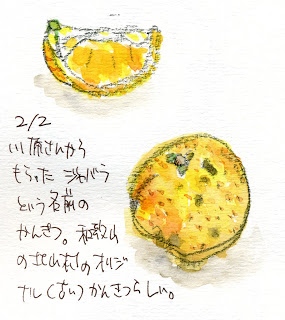 2/2
川原さんから
もらった ジャバラ
という名前の
かんきつ。和歌山
の北山村のオリジ
ナル(ない)かんきつらしい。